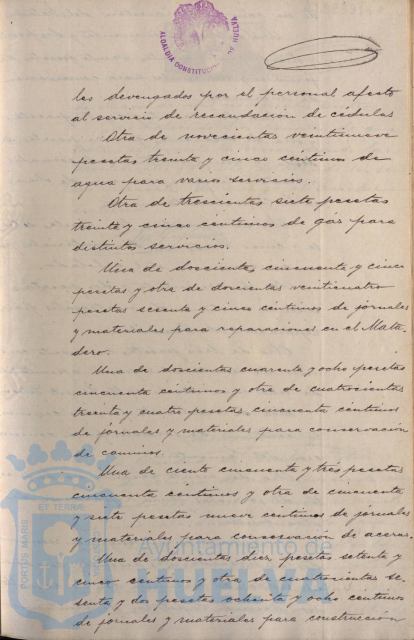 ALCALDIA CONSTITUCIONAL DE HUELVA
les devengados por el personal afecto
al servicio de recaudación de cédulas
Otra de novecientas veintinueve
pesetas treinta y cinco céntimos de
agua para varios servicios.
Otra de trescientas siete pesetas
treinta y cinco céntimos de gas para
distintos servicios.
Una de doscientas cincuenta y cinco
pesetas y otra de doscientas veinticuatro
pesetas sesenta y cinco céntimos de jornales
y materiales para reparaciones en el Mata-
dero.
Una de doscientas cuarenta y ocho pesetas
cincuenta céntimos y otra de cuatrocientas
treinta y cuatro pesetas cincuenta céntimos
de jornales y materiales para conservación
de caminos.
Una de ciento cincuenta y tres pesetas
cincuenta céntimos y otra de cincuenta
y siete pesetas nueve céntimos de jornales
y materiales para conservación de aceras.
Una de doscientas diez pesetas setenta y
cinco céntimos y otra de cuatrocientas se-
senta y dos pesetas ochenta y ocho céntimos
de jornales y materiales para construcción
PORTUS MARIS
ET TERRAE
Ayuntamiento de
HUELVA